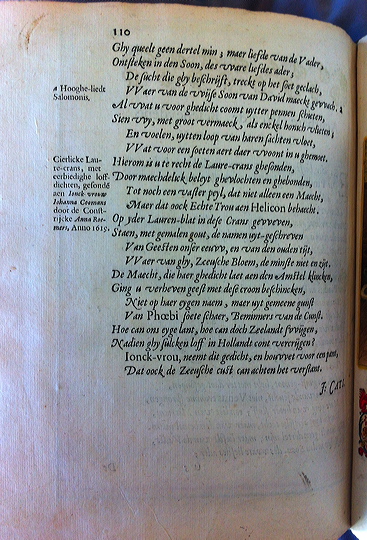 110
Ghy queelt geen dertel min, maer liefde van de Vader,
Ontsteken in den Soon, des ware liefdes ader;
De sucht die ghy beschrijft, treckt op het soet geclach,
a Hooghe-liedt
Salomonis.
VVaer van de wijse Soon van David maeckt gewach. a
Al wat u voor ghedicht coomt uytter pennen schieten,
Sien wy, met groot vermaeck, als enckel honich vlieten;
En voelen, uytten loop van haren sachten vloet,
VVat voor een soeten aert daer woont in u ghemoet.
Cierlicke Lau-
re-crans, met
eerbiedighe loff-
dichten, gesondē
aen Ionck-vrouw
Iohanna Coomans
door de Const-
rijcke Anna Roe-
mers, Anno 1619.
Hierom is u te recht de Laure-crans ghesonden,
Door maechdelick beleyt ghevlochten en ghebonden,
Tot noch een vaster peyl, dat niet alleen een Maecht,
Maer dat oock Echte Trou aen Helicon behaecht.
Op yder Lauren-blat in dese Crans geweven,
Staen, met gemalen gout, de namen uyt-geschreven
Van Geesten onser eeuw, en van den ouden tijt,
VVaer van ghy, Zeeusche Bloem, de minste niet en zijt.
De Maecht, die haer ghedicht laet aen den Amstel klincken,
Ging u verheven geest met dese croon beschincken,
Niet op haer eygen naem, maer uyt gemeene gunst
Van Phœbi soete schaer, Bemmers van de Cunst.
Hoe can ons eyge lant, hoe can doch Zeelandt swijgen,
Nadien ghy sulcken loff in Hollandt cont vercrijgen?
Ionck-vrou, neemt dit gedicht, en houwet voor een pant,
Dat oock de Zeeusche cust can achten het verstant.
I. CATS.